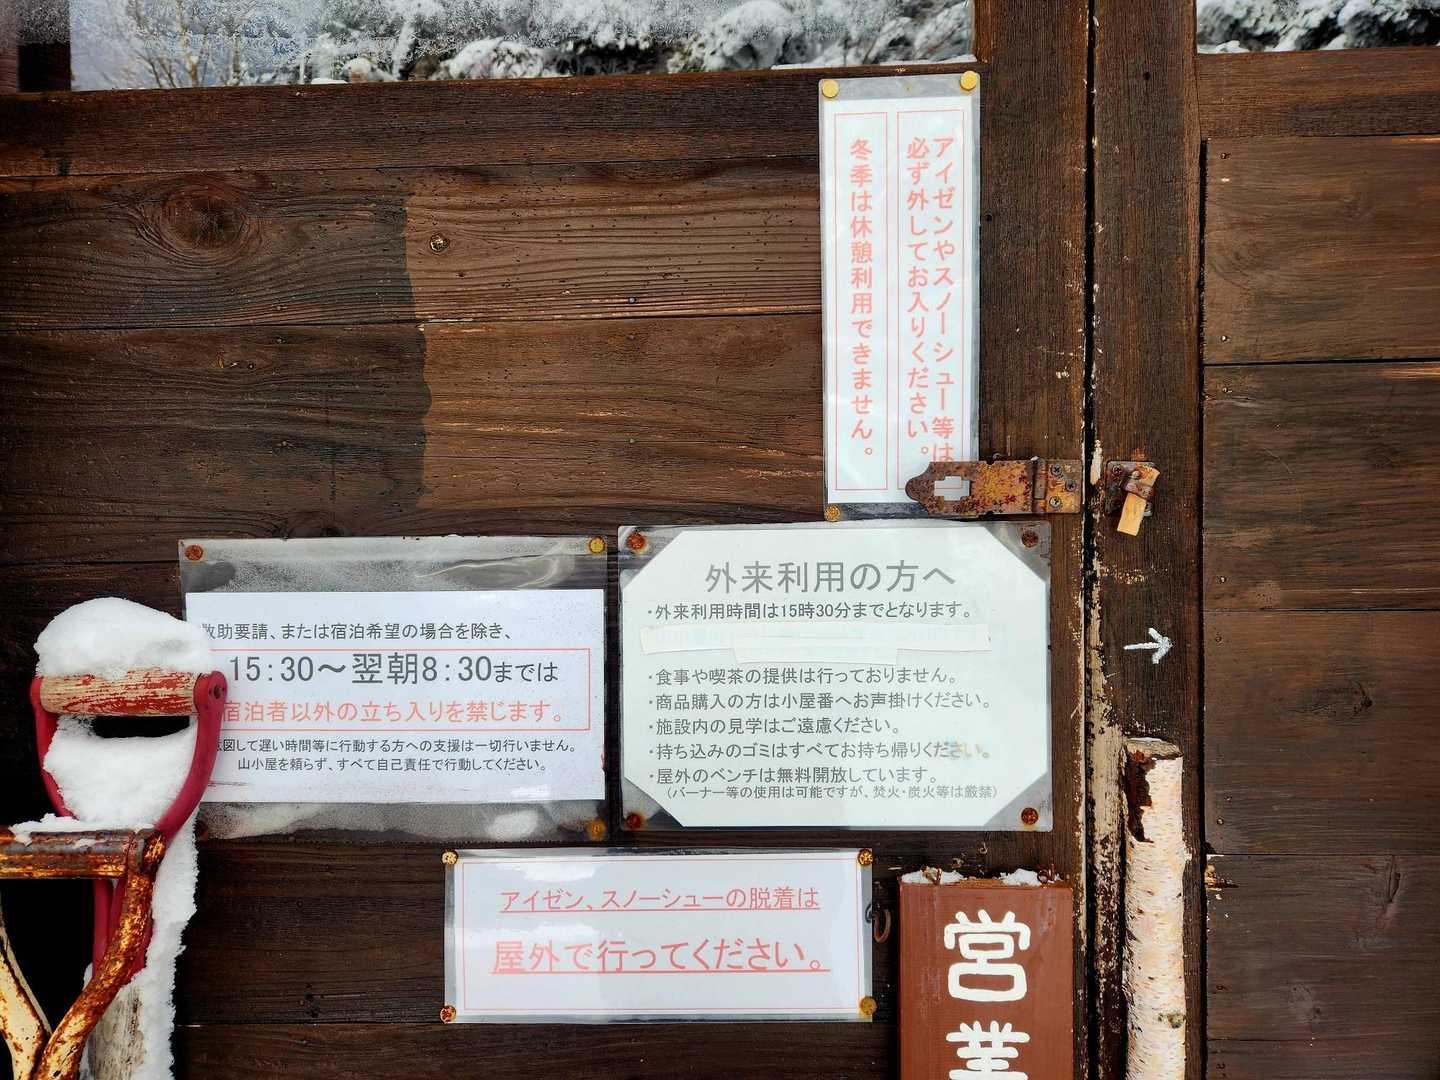 アイゼンやスノーシュー等は
必ず外してお入りください。
冬季は休憩利用できません。
救助要請、または宿泊希望の場合を除き、
15:30～翌朝8:30までは
宿泊者以外の立ち入りを禁じます。
図して遅い時間等に行動する方への支援は一切行いません。
山小屋を頼らず、すべて自己責任で行動してください。
外来利用の方へ
・外来利用時間は15時30分までとなります。
・食事や喫茶の提供は行っておりません。
・商品購入の方は小屋番へお声掛けください。
・施設内の見学はご遠慮ください。
・持ち込みのゴミはすべてお持ち帰りください。
・屋外のベンチは無料開放しています。
（バーナー等の使用は可能ですが、焚火・炭火等は厳禁）
アイゼン、スノーシューの脱着は
屋外で行ってください。
営業